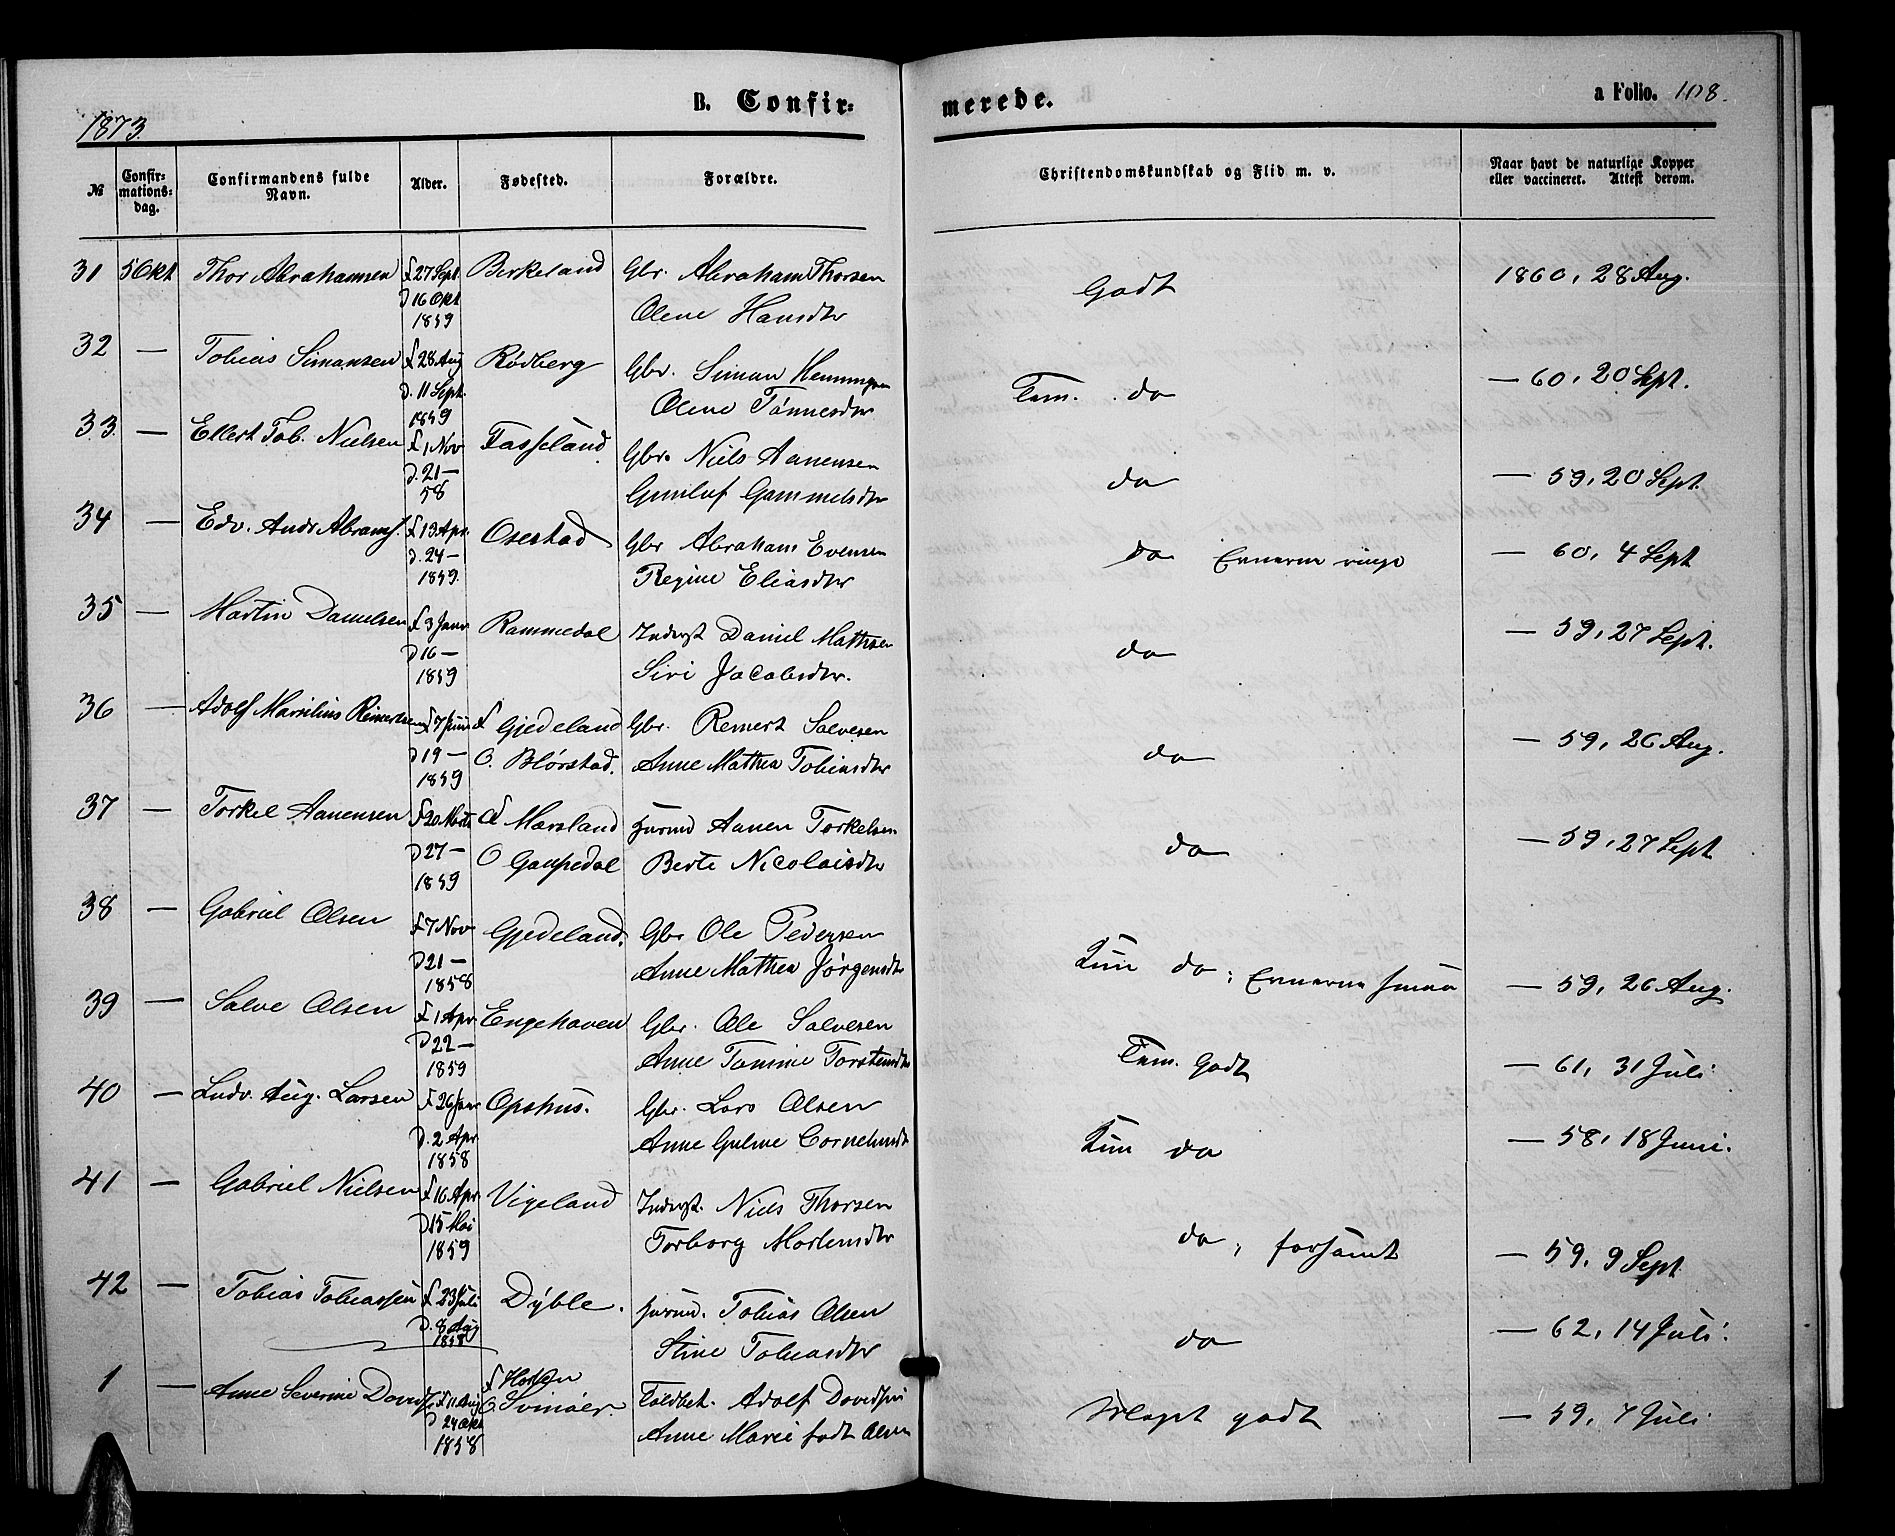 1873
B. Confir-
merede.
a Folio. 108.
№
Confirmations-dag.
Confirmandens fulde Navn.
Alder.
Fødested.
Forældre.
Christendomskundskab og Flid m. v.
Naar havt de naturlige Kopper eller vaccineret. Attest derom.
31 5 Okt Thor Abrahamsen f 27 Sept Birkeland Gbr. Abraham Thorsen Godt 1860, 28 Aug.
D 16 Okt Olene Hansdtr
1859
32 — Tobias Simonsen f 28 Aug Rødberg Gbr. Simon Hemmingsen Tem. do — 60, 20 Sept.
D. 11 Sept. Olene Tønnesdtr
1859
33 — Ellert Tob. Nielsen f 1 Nov Fasseland Gbr. Niels Aanensen do — 59, 20 Sept.
D. 21 — Gunluf Gammelsdtr
58
34 — Edv. Andr Abrams. f 19 Apr. Osestad Gbr Abraham Evensen do Evnerne ringe — 60, 4 Sept
D. 24 — Regine Eliasdtr
1859.
35 — Martin Danielsen f 3 Janr Rammedal Inderst Daniel Mathisen do — 59, 27 Sept.
D 16 — Siri Jacobsdtr.
1859
36 — Adolf Marsilius Reinertsen f 7 Juni f Gjedeland Gbr. Reinert Salvesen do — 59, 26 Aug.
D 19 — O. Blørstad. Anne Mathea Tobiasdtr
1859
37 — Torkel Aanensen f 20 Marts f Marsland Husmd Aanen Torkelsen do — 59, 27 Sept
D 27 — O Gaupedal Berte Nicolaisdtr
1859
38 — Gabriel Olsen f 7 Nov Gjedeland. Gbr Ole Pedersen Kun do, Evnerne smaa — 59, 26 Aug.
D 21 — Anne Mathea Jørgensdtr
1858
39 — Salve Olsen f 1 Apr Engehaven Gbr. Ole Salvesen Tem. Godt — 61, 31 Juli
D 22 — Anne Tomine Torstensdtr
1859
40 — Ludv. Aug. Larsen f 26 Janr Opshus. Gbr. Lars Olsen Kun do — 58, 18 Juni.
D. 2 Apr Anne Guline Corneliusdtr
1858
41 — Gabriel Nielsen f 16 Apr Vigeland Inderst. Niels Thorsen do, forsømt — 59, 9 Sept
D 15 Mai Torborg Mortensdtr
1859
42 — Tobias Tobiassen f 23 Juli Dyble. Husmd. Tobias Olsen do — 62, 14 Juli.
D. 8 Aug Stine Tobiasdtr
1858
1 — Anne Severine Davids. f 11 Aug f Horten Toldbet. Adolf Davidsen godt — 59, 7 Juli
D 24 Okt O. Svinøer. Anne Marie født Olsen
1858